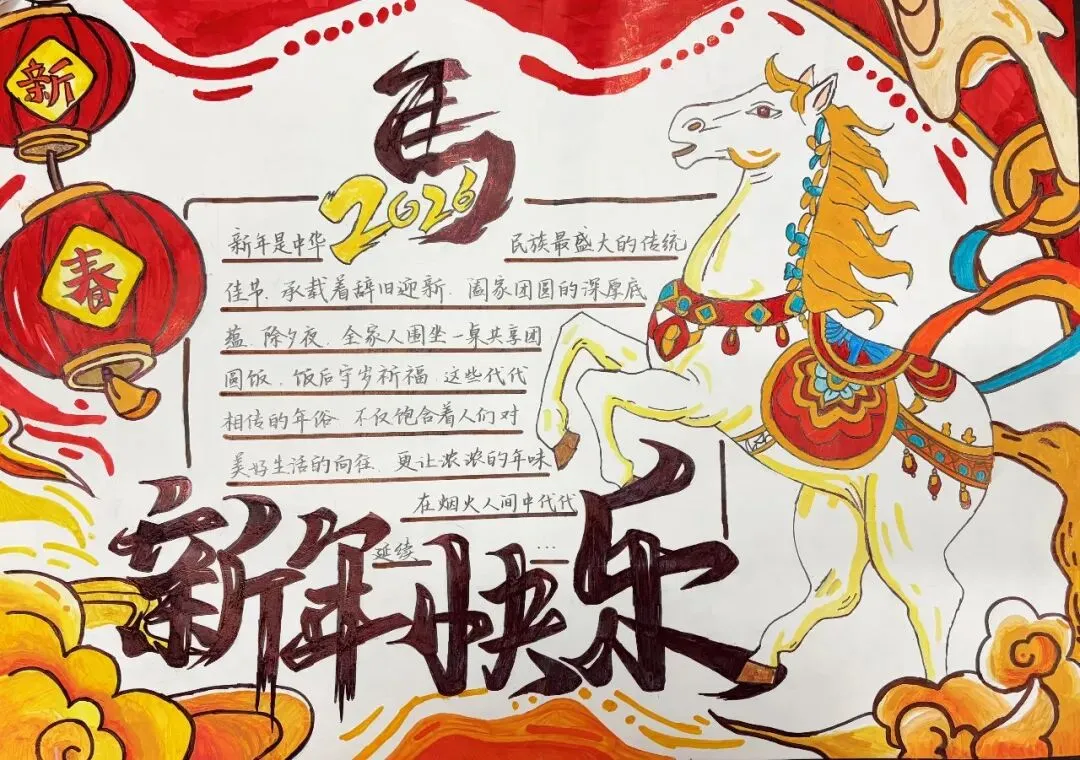 新
春
馬
2026
新年是中华 民族最盛大的传统
佳节、承载着辞旧迎新、阖家团圆的深厚底
蕴、除夕夜、全家人围坐一桌共享团
圆饭、饭后守岁祈福、这些代代
相传的年俗 不仅饱含着人们对
美好生活的向往、更让浓浓的年味
在烟火人间中代代
延续 ...
新年快乐